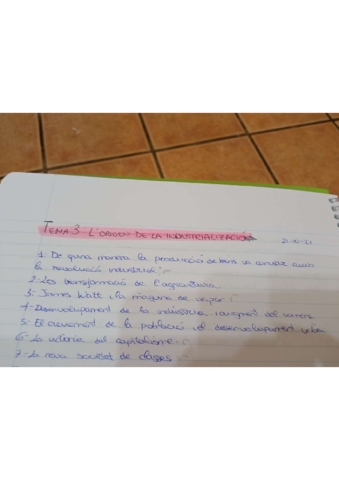 TEMA 3 L'ORIGEN DE LA INDUSTRIALIZACIÓN
1. De quina manera la producció de bens va canviar amb
la revolució industrial:
2- Les transformació de l'agricultura
3- James Watt i la màquina de vapor:
4- Desenvolupament de la indústria i augment del comerç
5- El creixement de la població i el desenvolupament urbà
6- La victòria del capitalisme:
7- La nova societat de classes: